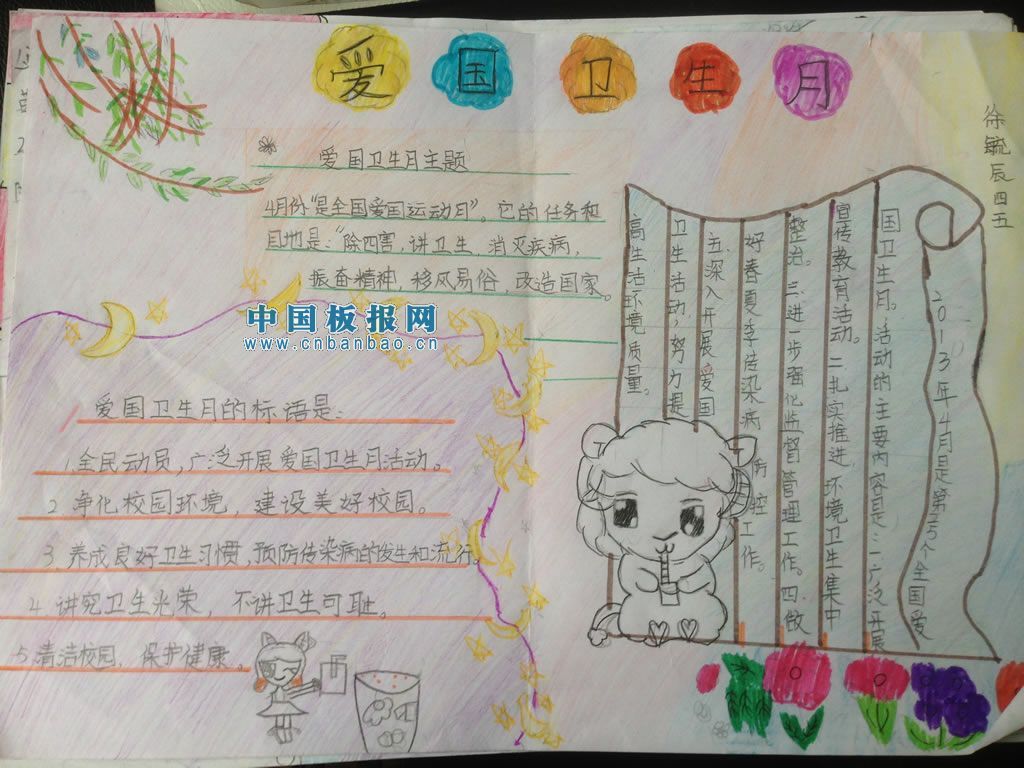 爱国卫生月
徐毓辰 四五
爱国卫生月主题
4月份“是全国爱国运动月”。它的任务和
目地是:“除四害,讲卫生,消灭疾病,
振奋精神,移风易俗,改造国家。
中国板报网
www.cnbanbao.cn
爱国卫生月的标语是:
1.全民动员,广泛开展爱国卫生月活动。
2.净化校园环境,建设美好校园。
3.养成良好卫生习惯,预防传染病的发生和流行。
4.讲究卫生光荣,不讲卫生可耻。
5.清洁校园,保护健康。
2013年4月是第25个全国爱
国卫生月。活动的主要内容是:一广泛开展
宣传教育活动。二扎实推进,环境卫生集中
整治。三进一步强化监督管理工作。四做
好春夏季传染病防控工作。
五、深入开展爱国
卫生活动,努力提
高生活环境质量。